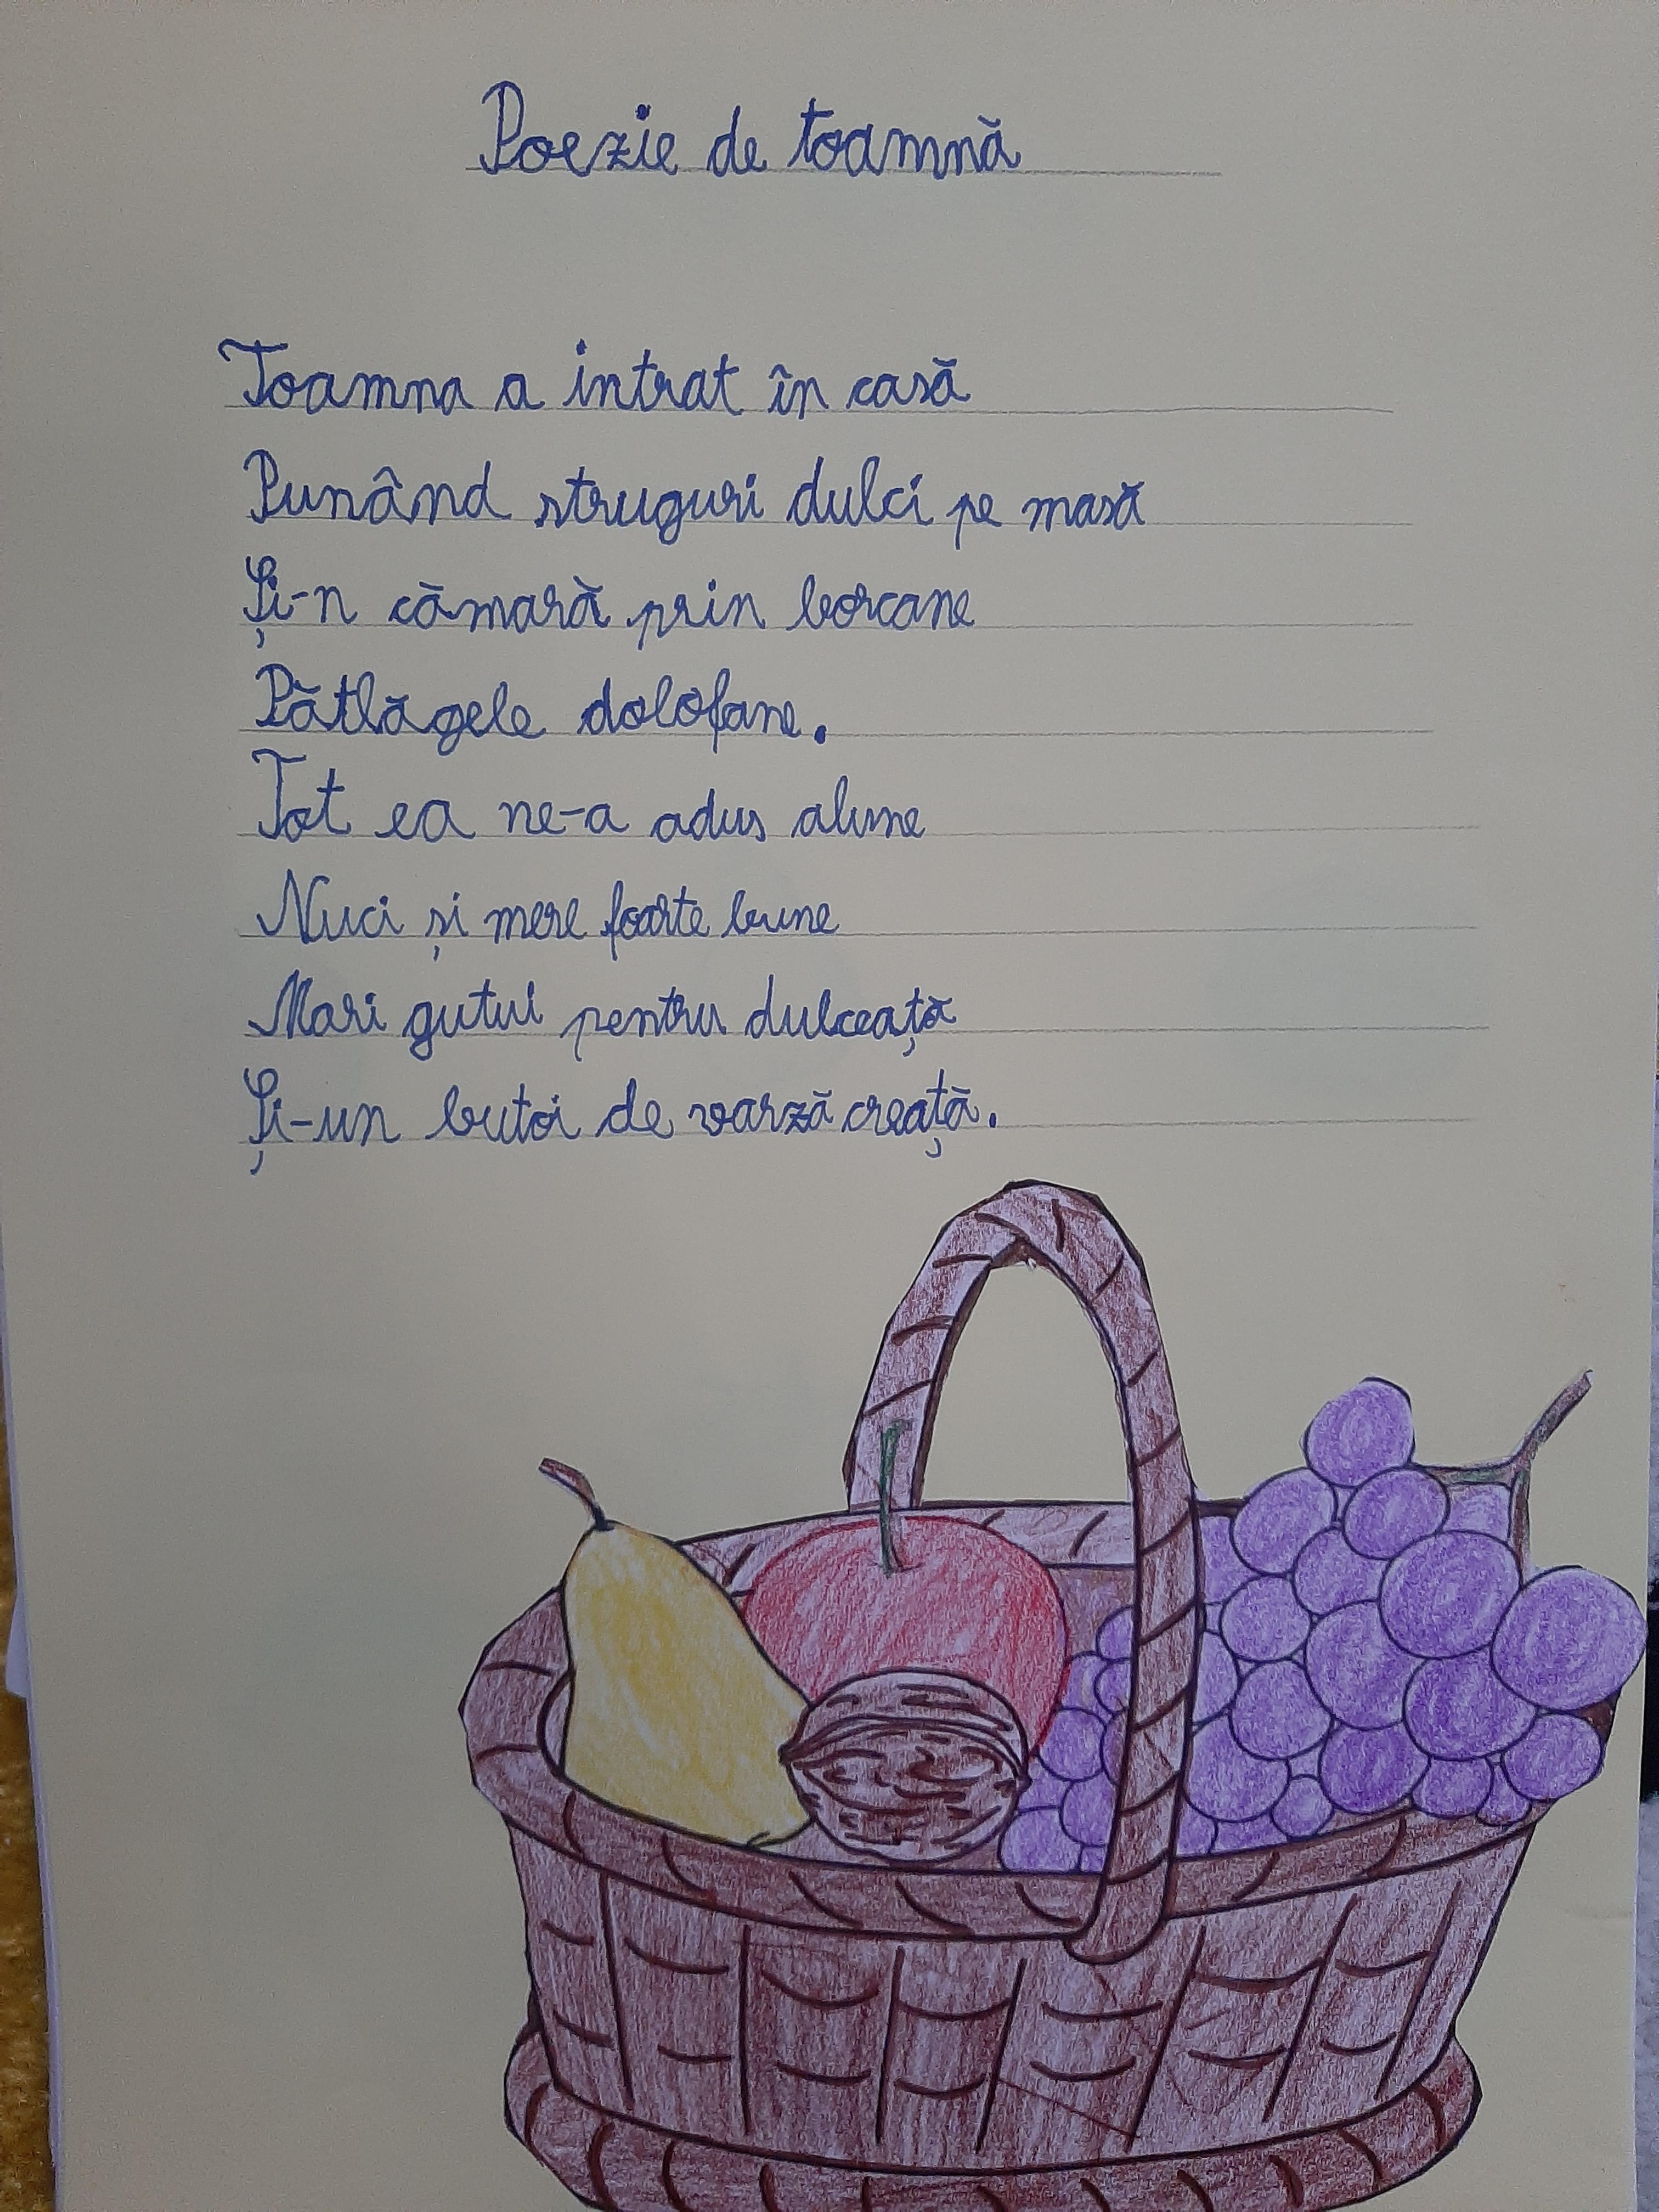 Poezie de toamnă
Toamna a intrat în casă
Punând struguri dulci pe masă
Și-n cămară prin borcane
Pătlăgele dolofane.
Tot ea ne-a adus alune
Nuci și mere foarte bune
Mari gutui pentru dulceață
Și-un butoi de varză creață.